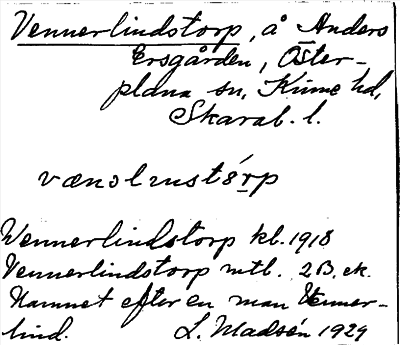 Vennerlindstorp, å Anders
Ersgården, Öster-
plana sn, Kinne hd,
Skarab. l.
vænəlinstórp
Wennerlindstorp kb. 1918
Vennerlindstorp mtl. 2B. ek.
Namnet efter en man Venner-
lind. L. Madsén 1929